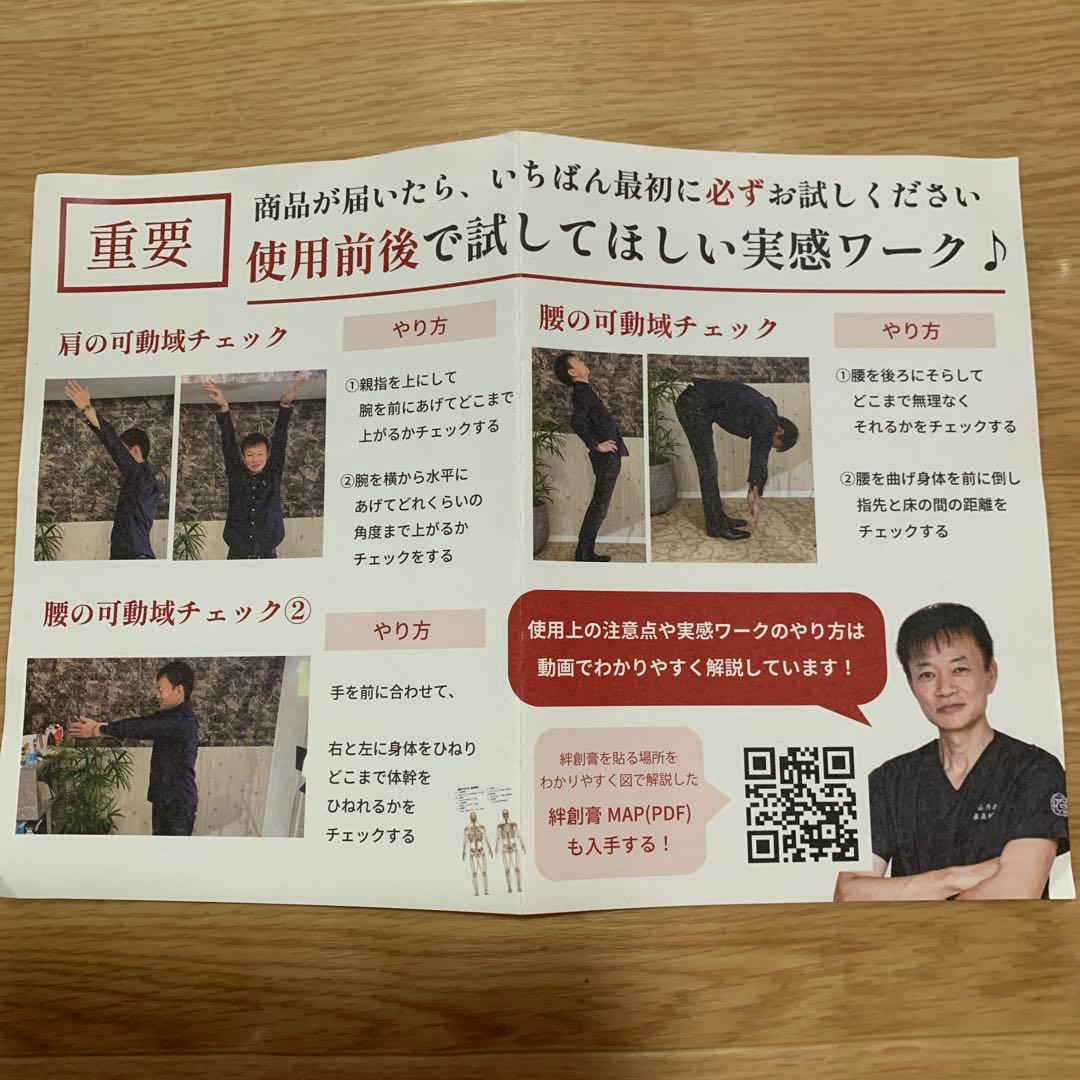 重要
商品が届いたら、いちばん最初に必ずお試しください
使用前後で試してほしい実感ワーク♪
肩の可動域チェック
やり方
①親指を上にして
腕を前にあげてどこまで
上がるかチェックする
②腕を横から水平に
あげてどれくらいの
角度まで上がるか
チェックをする
腰の可動域チェック
やり方
①腰を後ろにそらして
どこまで無理なく
それるかをチェックする
②腰を曲げ身体を前に倒し
指先と床の間の距離を
チェックする
腰の可動域チェック②
やり方
手を前に合わせて、
右と左に身体をひねり
どこまで体幹を
ひねれるかを
チェックする
使用上の注意点や実感ワークのやり方は
動画でわかりやすく解説しています！
絆創膏を貼る場所を
わかりやすく図で解説した
絆創膏 MAP(PDF)
も入手する！